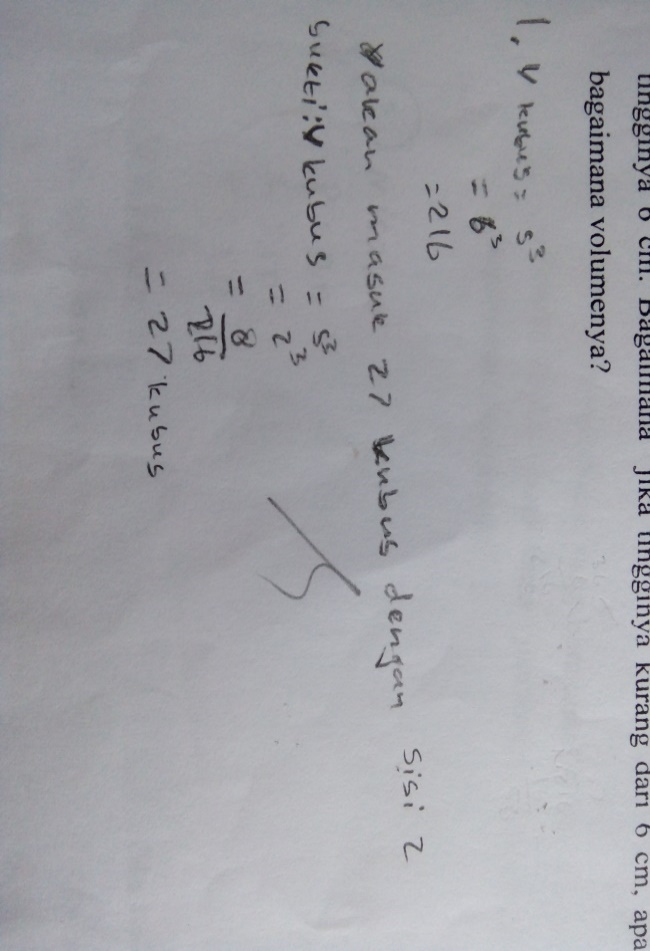 tingginya 6 cm. Bagaimana jika tingginya kurang dari 6 cm, apa
bagaimana volumenya?
1. V kubus = s³
= 6³
= 216
akan masuk 27 kubus dengan sisi 2
Bukti: V kubus = s³
= 2³
= 8
216
= 27 kubus